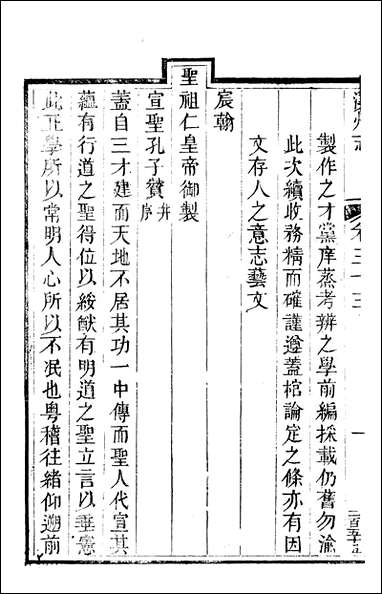 志 卷三十三 一
製作之才黨庠蒸考辨之學前編採載仍舊勿渝
此次續收務精而確謹遵蓋棺論定之條亦有因
文存人之意志藝文
宸翰
聖祖仁皇帝御製
宣聖孔子贊并序
蓋自三才建而天地不居其功一中傳而聖人代宣其
蘊有行道之聖得位以綏猷有明道之聖立言以垂憲
此正學所以常明人心所以不泯也粵稽往緒仰遡前